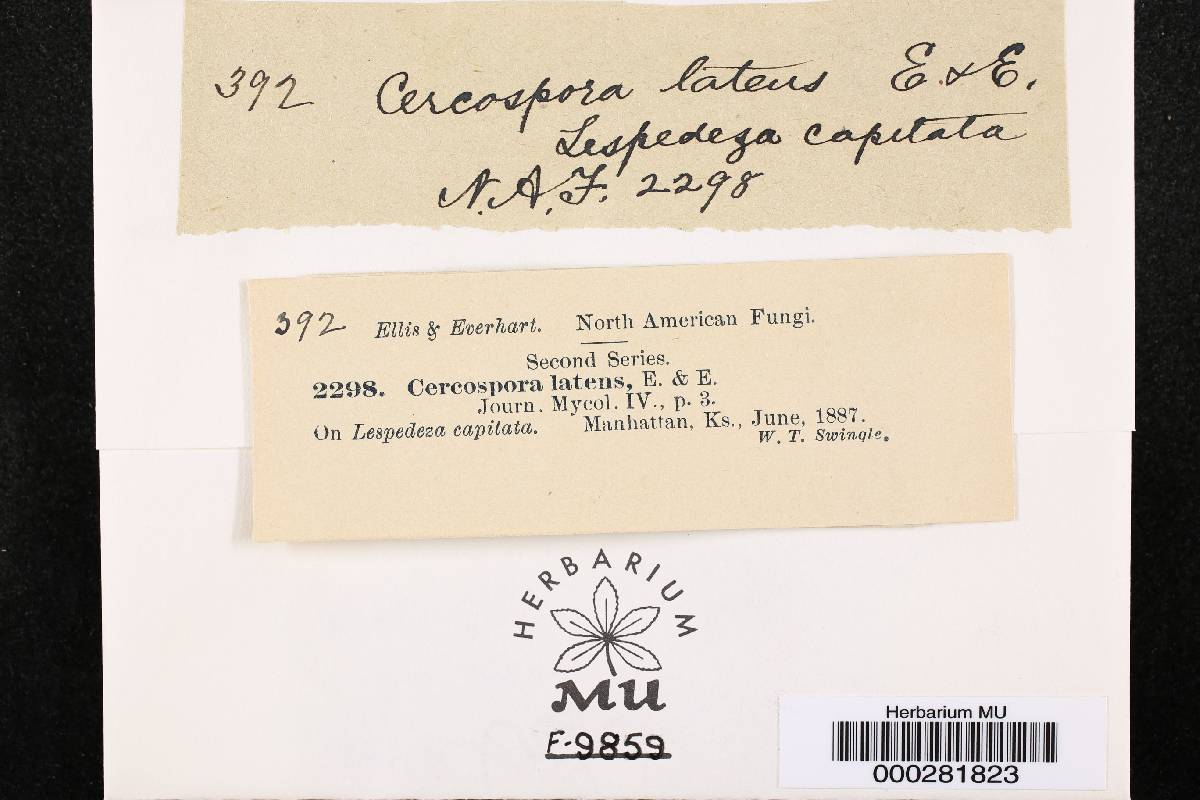 392 Cercospora latens E. & E.
Lespedeza capitata
N.A.F. 2298
392 Ellis & Everhart. North American Fungi.
Second Series.
2298. Cercospora latens, E. & E.
Journ. Mycol. IV., p. 3.
On Lespedeza capitata. Manhattan, Ks., June, 1887.
W. T. Swingle.
HERBARIUM
MU
F-9859
Herbarium MU
000281823